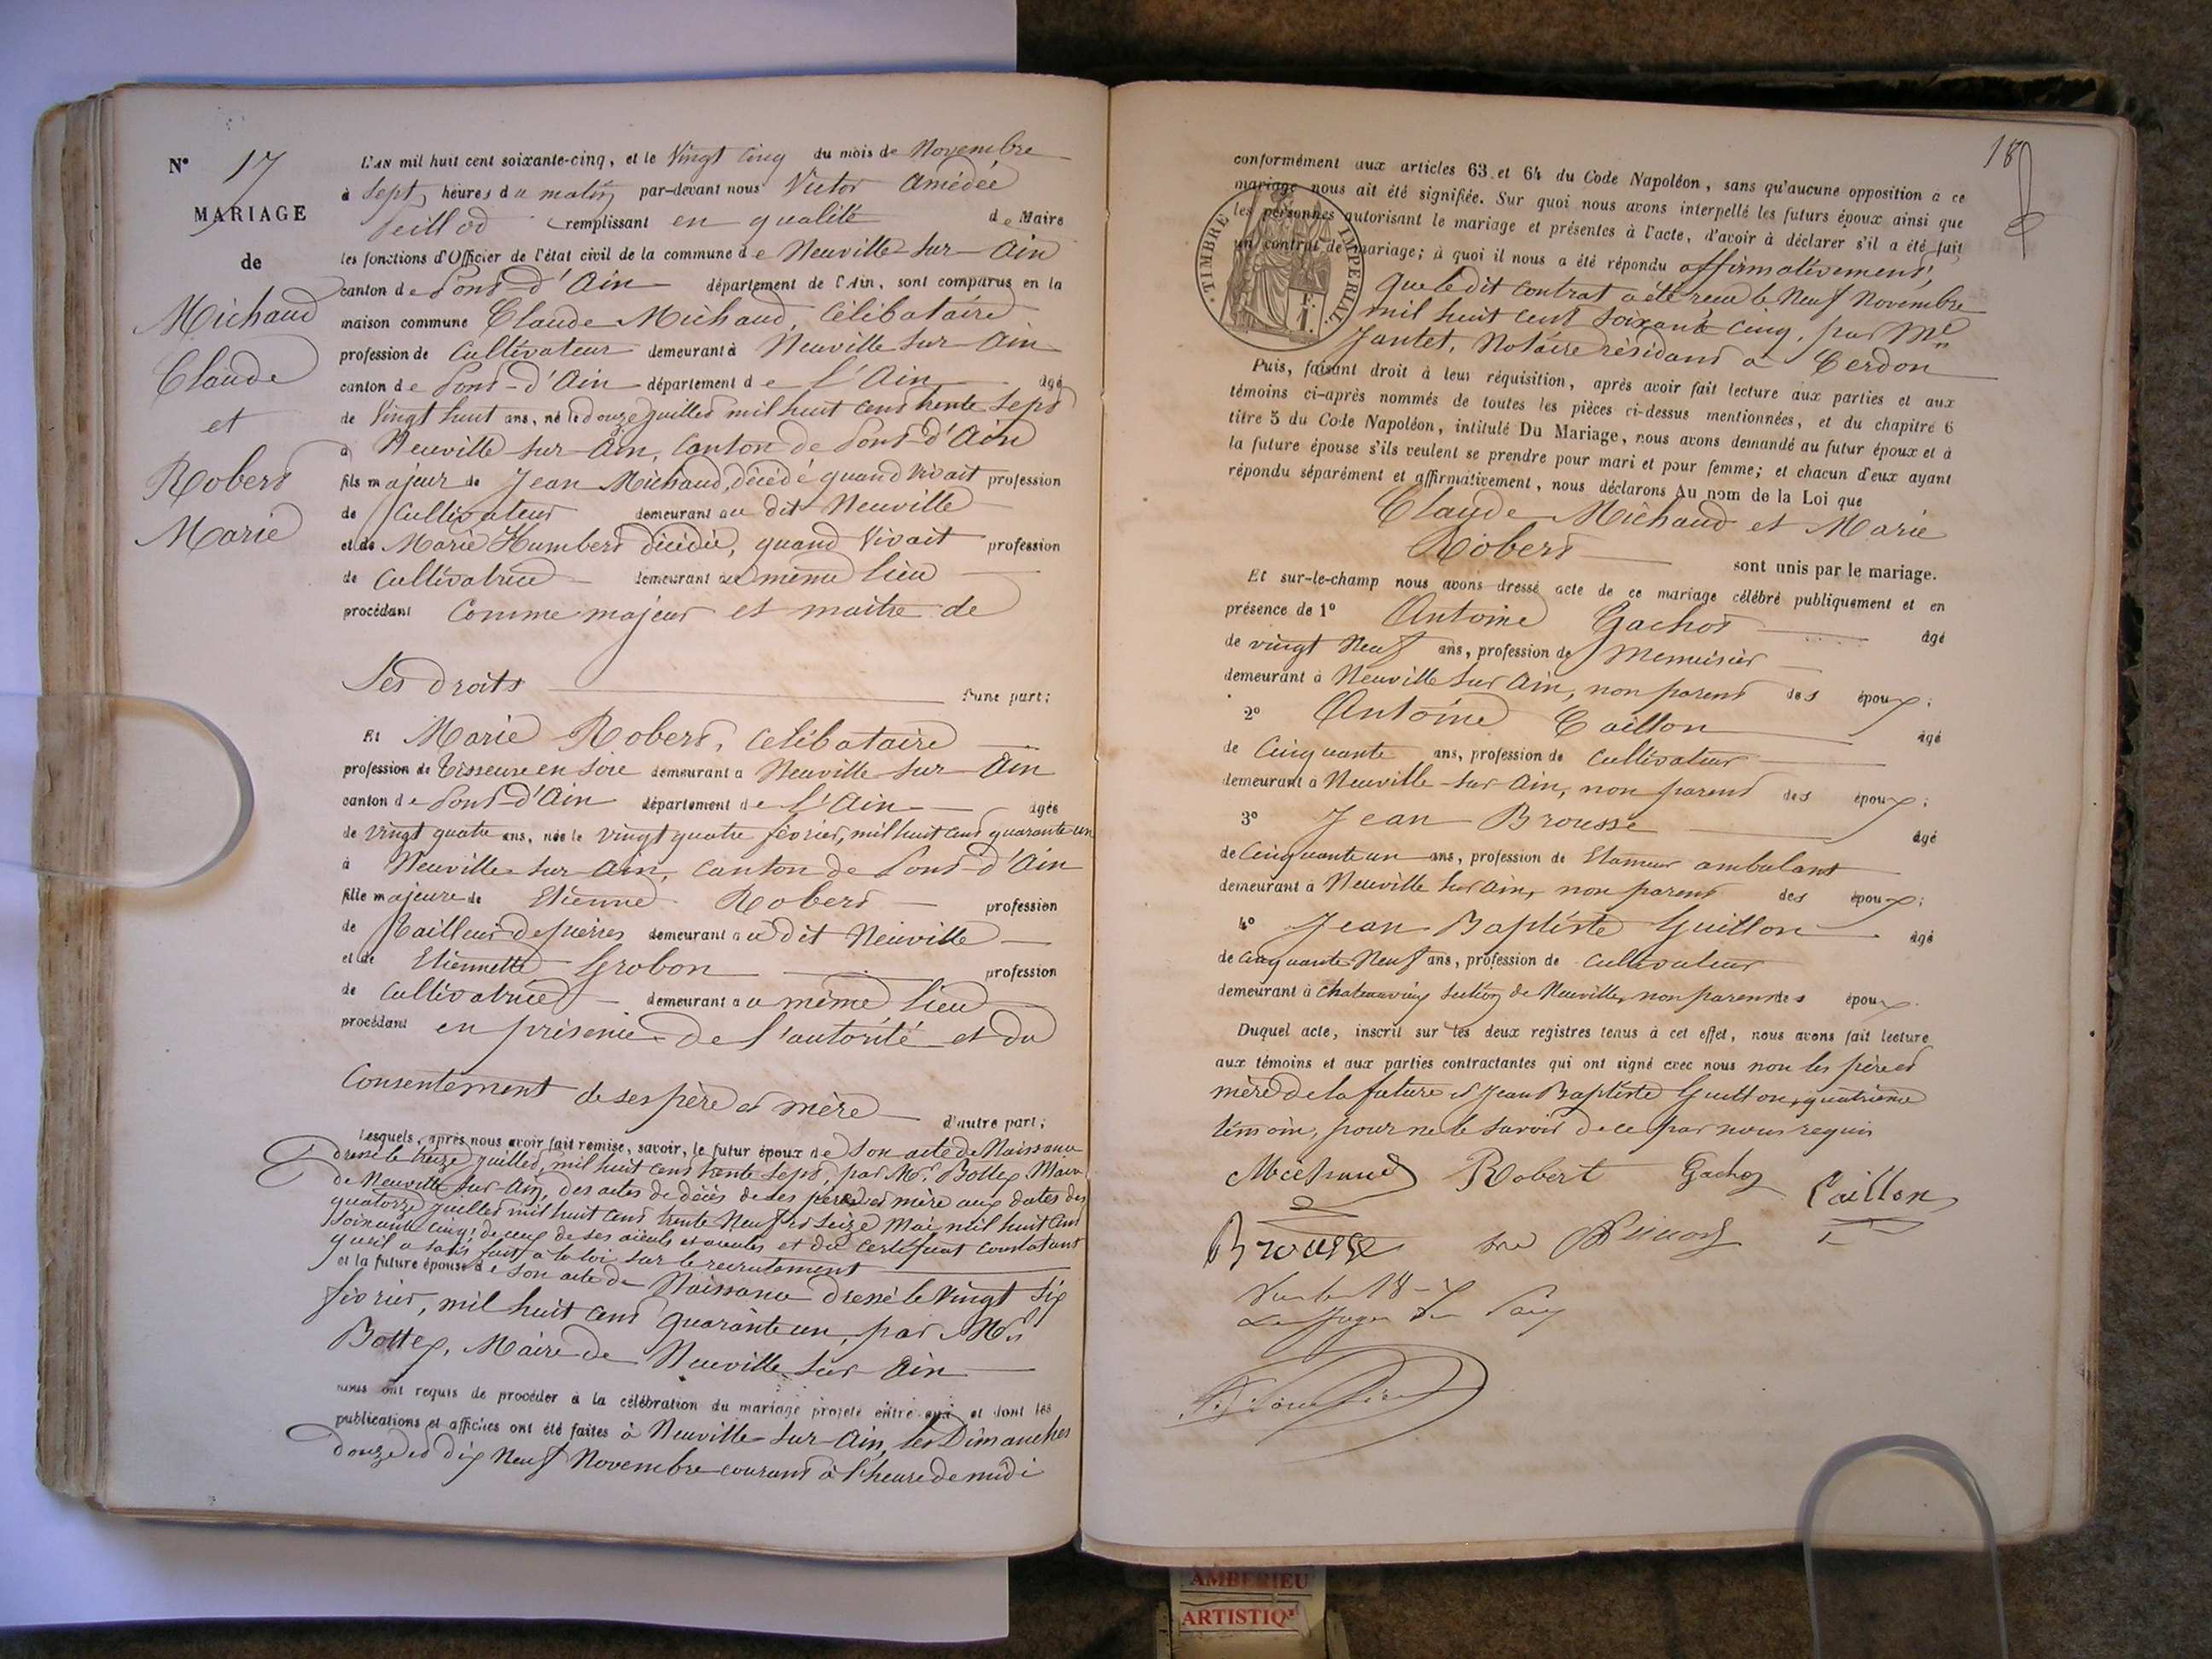 N° 17
MARIAGE
de
Michaud
Claude
et
Robert
Marie
L'AN mil huit cent soixante-cinq, et le Vingt Cinq du mois de Novembre
à Sept heures du matin par-devant nous Victor Amédée
Teillod remplissant en qualité de Maire
les fonctions d'Officier de l'état civil de la commune de Neuville sur Ain
canton de Pont d'Ain département de l'Ain, sont comparus en la
maison commune Claude Michaud, Célibataire
profession de Cultivateur demeurant à Neuville sur Ain
canton de Pont-d'Ain département de L'Ain âgé
de Vingt huit ans, né le douze juillet mil huit cent trente Sept
à Neuville sur Ain, Canton de Pont d'Ain
fils majeur de Jean Michaud, décédé quand vivait profession
de Cultivateur demeurant au dit Neuville
et de Marie Humbert décédée, quand Vivait profession
de Cultivatrice demeurant au même lieu
procédant Comme majeur et maître de
Ses droits d'une part;
Et Marie Robert, Celibataire
profession de Tisseuse en Soie demeurant à Neuville sur Ain
canton de Pont-d'Ain département de L'Ain âgée
de Vingt quatre ans, née le vingt quatre février, mil huit cent quarante un
à Neuville sur Ain, Canton de Pont d'Ain
fille majeure de Etienne Robert profession
de Tailleur de pierres demeurant au dit Neuville
et de Etiennette Grobon profession
de Cultivatrice demeurant au même lieu
procédant en présence de l'autorité et du
Consentement de ses père et mère d'autre part;
Lesquels, après nous avoir fait remise, savoir, le futur époux de Son acte de Naissance
dressé le treize juillet, mil huit cent trente Sept, par Mr. Bottex Maire
de Neuville sur Ain, des actes de décès de ses père et mère aux dates des
quatorze juillet mil huit cent trente Neuf et Seize Mai mil huit cent
soixante cinq; de ceux de ses aïeuls et aieules et du certificat constatant
qu'il a satisfait à la loi sur le recrutement
et la future épouse de Son acte de Naissance dressé le Vingt Six
février, mil huit cent quarante un, par Mr
Bottex, Maire de Neuville sur Ain
nous ont requis de procéder à la célébration du mariage projeté entre eux et dont les
publications et affiches ont été faites à Neuville sur Ain, les Dimanches
douze et dix Neuf Novembre courant à l'heure de midi
18
conformément aux articles 63 et 64 du Code Napoléon, sans qu'aucune opposition à ce
mariage nous ait été signifiée. Sur quoi nous avons interpellé les futurs époux ainsi que
les personnes autorisant le mariage et présentes à l'acte, d'avoir à déclarer s'il a été fait
un contrat de mariage; à quoi il nous a été répondu affirmativement,
TIMBRE IMPERIAL
que le dit Contrat a été reçu le Neuf Novembre
mil huit cent soixante cinq, par Me
Jantet, Notaire résidant à Cerdon
Puis, faisant droit à leur réquisition, après avoir fait lecture aux parties et aux
témoins ci-après nommés de toutes les pièces ci-dessus mentionnées, et du chapitre 6
titre 5 du Code Napoléon, intitulé Du Mariage, nous avons demandé au futur époux et à
la future épouse s'ils veulent se prendre pour mari et pour femme; et chacun d'eux ayant
répondu séparément et affirmativement, nous déclarons Au nom de la Loi que
Claude Michaud et Marie
Robert sont unis par le mariage.
Et sur-le-champ nous avons dressé acte de ce mariage célébré publiquement et en
présence de 1° Antoine Gachot âgé
de vingt Neuf ans, profession de Menuisier
demeurant à Neuville sur Ain, non parent des époux;
2° Antoine Caillon âgé
de Cinquante ans, profession de Cultivateur
demeurant à Neuville sur Ain, non parent des époux;
3° Jean Brousse âgé
de Cinquante un ans, profession de Etameur ambulant
demeurant à Neuville sur Ain, non parent des époux;
4° Jean Baptiste Guillon âgé
de Cinquante Neuf ans, profession de Cultivateur
demeurant à Chateauvieux Section de Neuville, non parent des époux.
Duquel acte, inscrit sur les deux registres tenus à cet effet, nous avons fait lecture
aux témoins et aux parties contractantes qui ont signé avec nous non les père et
mère de la future et Jean Baptiste Guillon, quatrième
témoin, pour ne le savoir de ce par nous requis
Michaud Robert Gachot Caillon
Brousse
Le Juge de Paix
AMBERIEU
ARTISTIQ